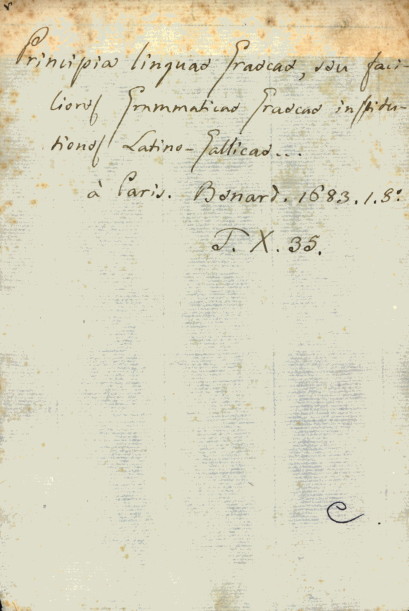 Principia linguae Graecae, seu faci-
liores Grammaticae Graecae institu-
tiones Latino-Gallicae...
à Paris. Benard. 1683. 1. 8:°
T. X. 35.
C.